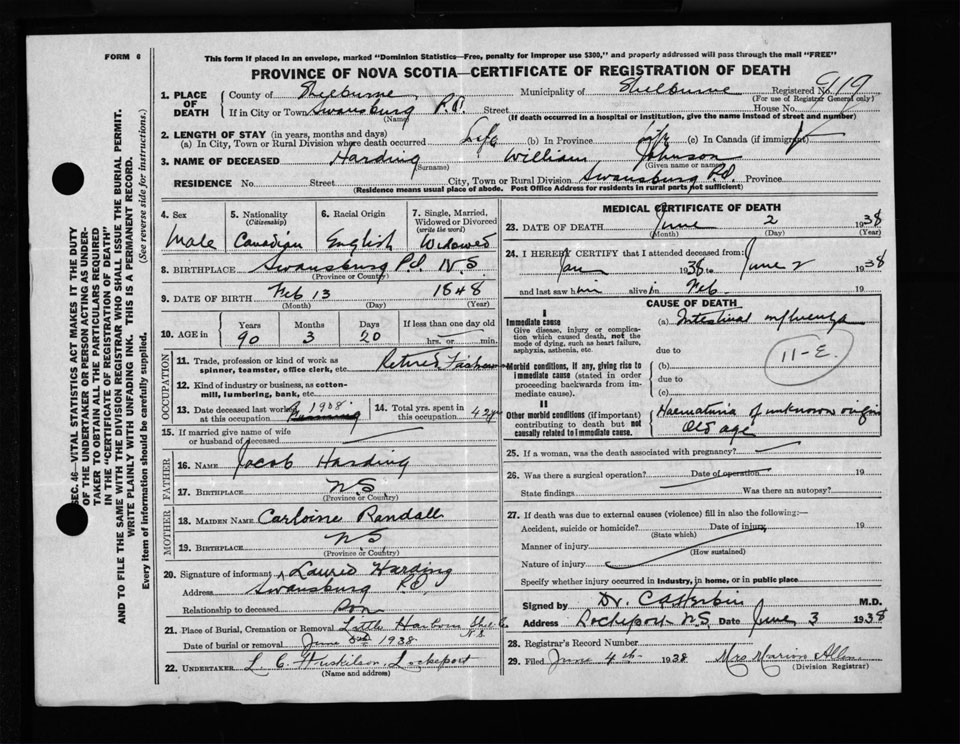 FORM 6
This form if placed in an envelope, marked "Dominion Statistics—Free, penalty for improper use $300," and properly addressed will pass through the mail "FREE"
PROVINCE OF NOVA SCOTIA—CERTIFICATE OF REGISTRATION OF DEATH
SEC. 46—VITAL STATISTICS ACT MAKES IT THE DUTY OF THE UNDERTAKER OR PERSON ACTING AS UNDERTAKER TO OBTAIN ALL THE PARTICULARS REQUIRED IN THE "CERTIFICATE OF REGISTRATION OF DEATH"
AND TO FILE THE SAME WITH THE DIVISION REGISTRAR WHO SHALL ISSUE THE BURIAL PERMIT.
WRITE PLAINLY WITH UNFADING INK. THIS IS A PERMANENT RECORD.
Every item of information should be carefully supplied. (See reverse side for instructions.)
1. PLACE OF DEATH
County of Shelburne Municipality of Shelburne Registered No. 919
(For use of Registrar General only)
If in City or Town Swansburg P.O. Street House No.
(Name) (If death occurred in a hospital or institution, give the name instead of street and number)
2. LENGTH OF STAY (in years, months and days)
(a) In City, Town or Rural Division where death occurred Life (b) In Province Life (c) In Canada (if immigrant)
3. NAME OF DECEASED Harding William Johnson
(Surname) (Given name or names)
RESIDENCE No. Street City, Town or Rural Division Swansburg P.O. Province
(Residence means usual place of abode. Post Office Address for residents in rural parts not sufficient)
4. Sex
Male
5. Nationality (Citizenship)
Canadian
6. Racial Origin
English
7. Single, Married, Widowed or Divorced (write the word)
Widowed
8. BIRTHPLACE Swansburg P.O. N.S
(Province or Country)
9. DATE OF BIRTH Feb 13 1848
(Month) (Day) (Year)
10. AGE in Years Months Days If less than one day
90 3 20 hrs. or min.
OCCUPATION
11. Trade, profession or kind of work as spinner, teamster, office clerk, etc. Retired
12. Kind of industry or business, as cotton-mill, lumbering, bank, etc.
13. Date deceased last worked at this occupation 1908
14. Total yrs. spent in this occupation 42
15. If married give name of wife or husband of deceased
FATHER
16. NAME Jacob Harding
17. BIRTHPLACE NS
(Province or Country)
MOTHER
18. MAIDEN NAME Carloine Randall
19. BIRTHPLACE NS
(Province or Country)
20. Signature of informant Laurie Harding
Address Swansburg P.O.
Relationship to deceased Son
21. Place of Burial, Cremation or Removal Little Harbour Shel. Co. N.S.
Date of burial or removal June 3rd 1938
22. UNDERTAKER L. C. Huskilson, Lockeport
(Name and address)
MEDICAL CERTIFICATE OF DEATH
23. DATE OF DEATH June 2 1938
(Month) (Day) (Year)
24. I HEREBY CERTIFY that I attended deceased from:
Jan 1938 to June 2 1938
and last saw him alive in Feb. 19
CAUSE OF DEATH
I
Immediate cause
Give disease, injury or complication which caused death, not the mode of dying, such as heart failure, asphyxia, asthenia, etc.
(a) Intestinal influenza
due to
11-E.
Morbid conditions, if any, giving rise to immediate cause (stated in order proceeding backwards from immediate cause).
(b)
due to
(c)
II
Other morbid conditions (if important) contributing to death but not causally related to immediate cause.
Haematuria of unknown origin
Old age
25. If a woman, was the death associated with pregnancy?
26. Was there a surgical operation? Date of operation 19
State findings Was there an autopsy?
27. If death was due to external causes (violence) fill in also the following:—
Accident, suicide or homicide? Date of injury 19
(State which)
Manner of injury
(How sustained)
Nature of injury
Specify whether injury occurred in industry, in home, or in public place
Signed by Dr. M.D.
Address Lockeport N.S. Date June 3 1938
28. Registrar's Record Number
29. Filed June 4th 1938 Mrs Marion Allen
(Division Registrar)